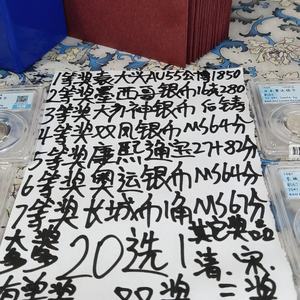 1等奖袁大头AU55公博1850
2等奖墨西哥银币16克280
3等奖大力神银币后铸
4等奖双凤银币MS64分
5等奖康熙通宝27+82分
6等奖奥运银币MS64分
7等奖长城币1角MS67分
大奖
多多
20选1
其它奖品
清.宋.